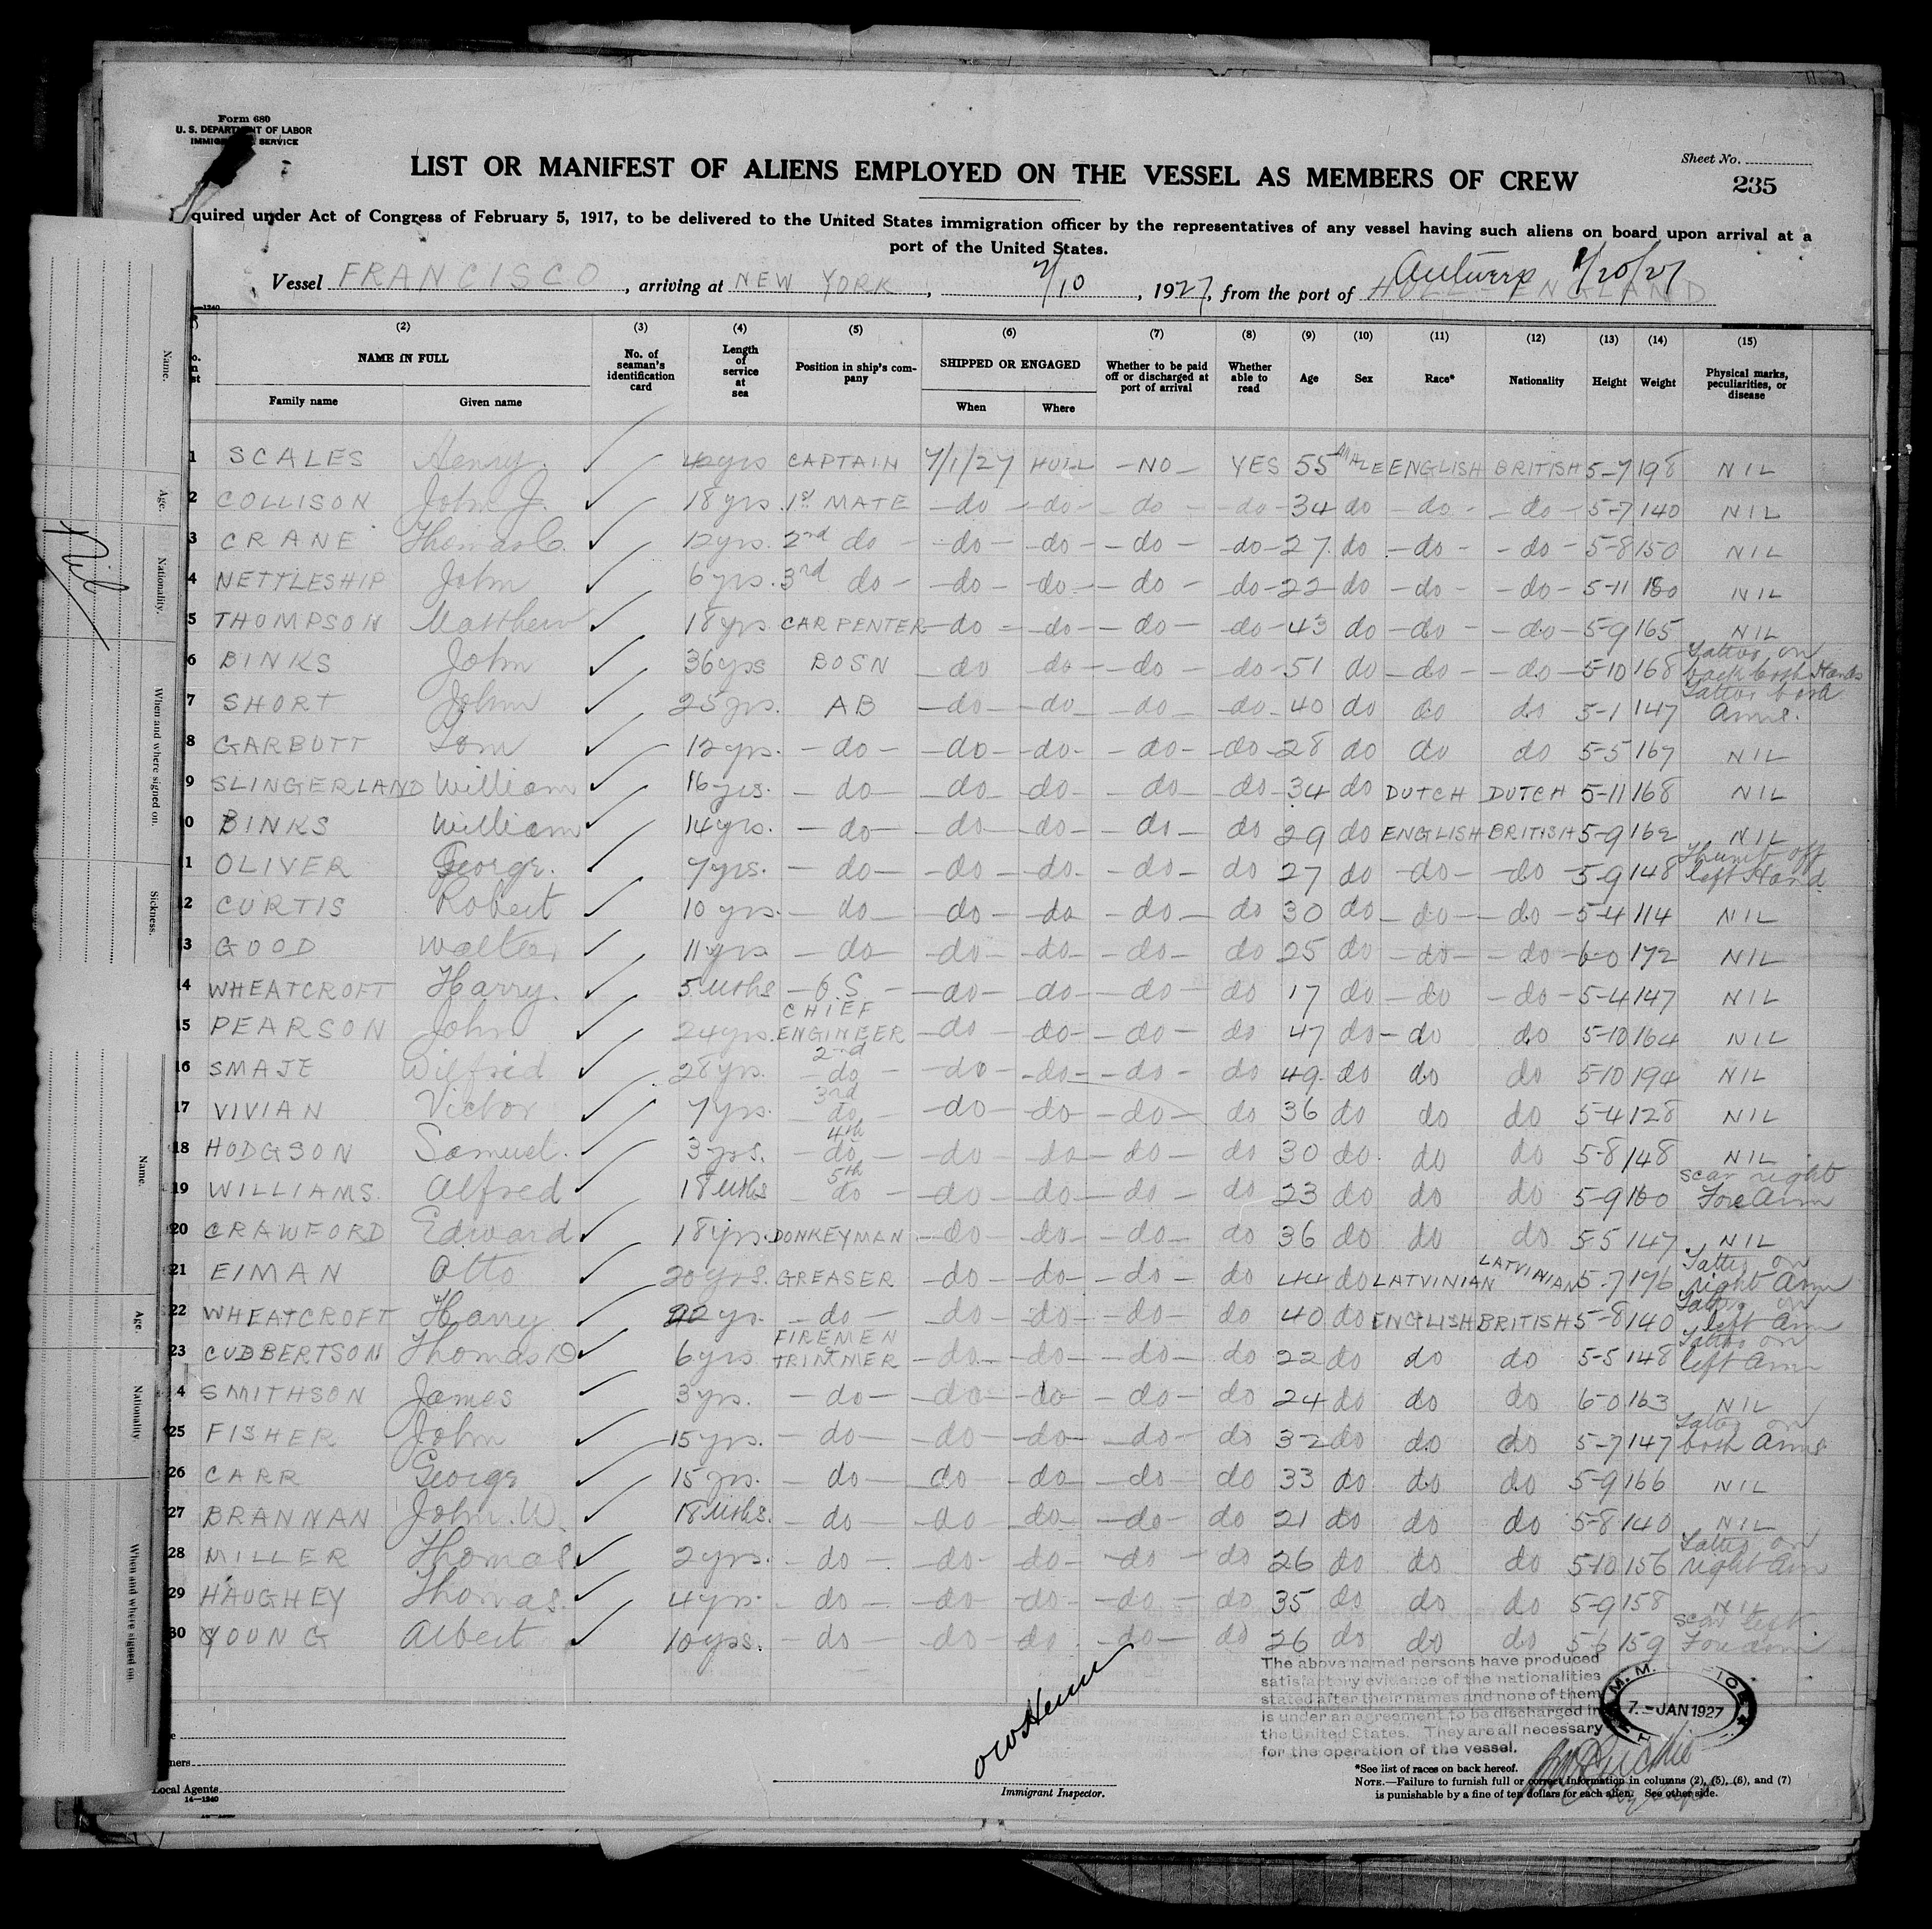 Form 680
U. S. DEPARTMENT OF LABOR
SERVICE
LIST OR MANIFEST OF ALIENS EMPLOYED ON THE VESSEL AS MEMBERS OF CREW
Sheet No.
235
quired under Act of Congress of February 5, 1917, to be delivered to the United States immigration officer by the representatives of any vessel having such aliens on board upon arrival at a
port of the United States.
Vessel FRANCISCO, arriving at NEW YORK, 7/10, 1927, from the port of HULL ENGLAND Antwerp 1/20/27
(2) (3) (4) (5) (6) (7) (8) (9) (10) (11) (12) (13) (14) (15)
NAME IN FULL No. of seaman's identification card Length of service at sea Position in ship's company SHIPPED OR ENGAGED Whether to be paid off or discharged at port of arrival Whether able to read Age Sex Race* Nationality Height Weight Physical marks, peculiarities, or disease
Family name Given name When Where
1 SCALES Henry 42yrs CAPTAIN 7/1/27 HULL -NO- YES 55 MALE ENGLISH BRITISH 5-7 198 NIL
2 COLLISON John J. 18yrs. 1st MATE -do -do- -do- -do- 34 do -do- -do- 5-7 140 NIL
3 CRANE Thomas C. 12yrs. 2nd do - -do- -do- -do- -do- 27 do -do- -do- 5-8 150 NIL
4 NETTLESHIP John 6yrs. 3rd do - -do- -do- -do- -do- 22 do -do- -do- 5-11 180 NIL
5 THOMPSON Matthew 18yrs CARPENTER -do- -do- -do- -do- 43 do -do- -do- 5-9 165 NIL
6 BINKS John 36yrs BOSN -do -do- -do- -do- 51 do -do- -do- 5-10 168 Tattoo on back both Hands
7 SHORT John 25yrs. AB -do- -do- -do- -do- 40 do do do 5-1 147 Tattoo both Arms.
8 GARBUTT Tom 12yrs. -do- -do- -do- -do- -do- 28 do do do 5-5 167 NIL
9 SLINGERLAND William 16yrs. -do- -do- -do- -do- -do- 34 do DUTCH DUTCH 5-11 168 NIL
0 BINKS William 14yrs. -do- -do- -do- -do- do 29 do ENGLISH BRITISH 5-9 162 NIL
1 OLIVER George. 7yrs. -do- -do- -do- -do- do 27 do -do- -do 5-9 148 Thumb off left Hand
2 CURTIS Robert 10yrs. -do- -do- -do -do- do 30 do -do- -do- 5-4 114 NIL
3 GOOD Walter 11yrs -do- -do- -do- -do- do 25 do -do- -do- 6-0 172 NIL
4 WHEATCROFT Harry. 5 mths -O.S- -do- -do- -do- do 17 do -do -do- 5-4 147 NIL
5 PEARSON John 24yrs. CHIEF ENGINEER -do -do- -do- do 47 do -do do 5-10 164 NIL
16 SMAJE Wilfred 28yrs. 2nd -do- -do- -do- -do- do 49 do do do 5-10 194 NIL
17 VIVIAN Victor 7yrs. 3rd -do- -do- -do- -do- do 36 do do do 5-4 128 NIL
18 HODGSON Samuel. 3yrs. 4th -do- -do- -do- -do- do 30 do do do 5-8 148 NIL
19 WILLIAMS. Alfred 18 mths 5th do -do- -do- -do- do 23 do do do 5-9 160 scar right ForeArm
20 CRAWFORD Edward 18yrs. DONKEYMAN -do- -do- -do- do 36 do do do 5-5 147 NIL
21 EIMAN Otto 20yrs. GREASER -do- -do- -do- do 44 do LATVINIAN LATVINIAN 5-7 196 Tattoo on right Arm
22 WHEATCROFT Harry yrs. -do- -do- -do- -do- do 40 do ENGLISH BRITISH 5-8 140 Tattoo on left Arm
23 CUDBERTSON Thomas D 6yrs FIREMEN TRIMMER -do- -do- -do- do 22 do do do 5-5 148 Tattoo on left Arm
4 SMITHSON James 3yrs. -do- -do- -do- -do- do 24 do do do 6-0 163 NIL
25 FISHER John 15yrs. -do- -do- -do- -do- do 32 do do do 5-7 147 Tattoo on both Arms
26 CARR George 15yrs. -do- do- -do- -do- do 33 do do do 5-9 166 NIL
27 BRANNAN John. W. 18 mths. -do- -do- do- -do- do 21 do do do 5-8 140 NIL
28 MILLER Thomas 2yrs. -do- -do- do- -do- do 26 do do do 5-10 156 Tattoo on right Arm
29 HAUGHEY Thomas. 4yrs. -do- -do- do- -do- do 35 do do do 5-9 158 NIL
30 YOUNG Albert 10yrs. -do- -do- do -do- do 26 do do do 5-6 159 Scar left Forearm
The above named persons have produced
satisfactory evidence of the nationalities
stated after their names and none of them
is under an agreement to be discharged in
the United States. They are all necessary
for the operation of the vessel.
7 - JAN 1927
Local Agents
14-1240
Immigrant Inspector.
*See list of races on back hereof.
NOTE.—Failure to furnish full or correct information in columns (2), (5), (6), and (7)
is punishable by a fine of ten dollars for each alien. See other side.
Name.
Age.
Nationality.
When and where signed on.
Sickness.
Name.
Age.
Nationality
When and where signed on
Nil